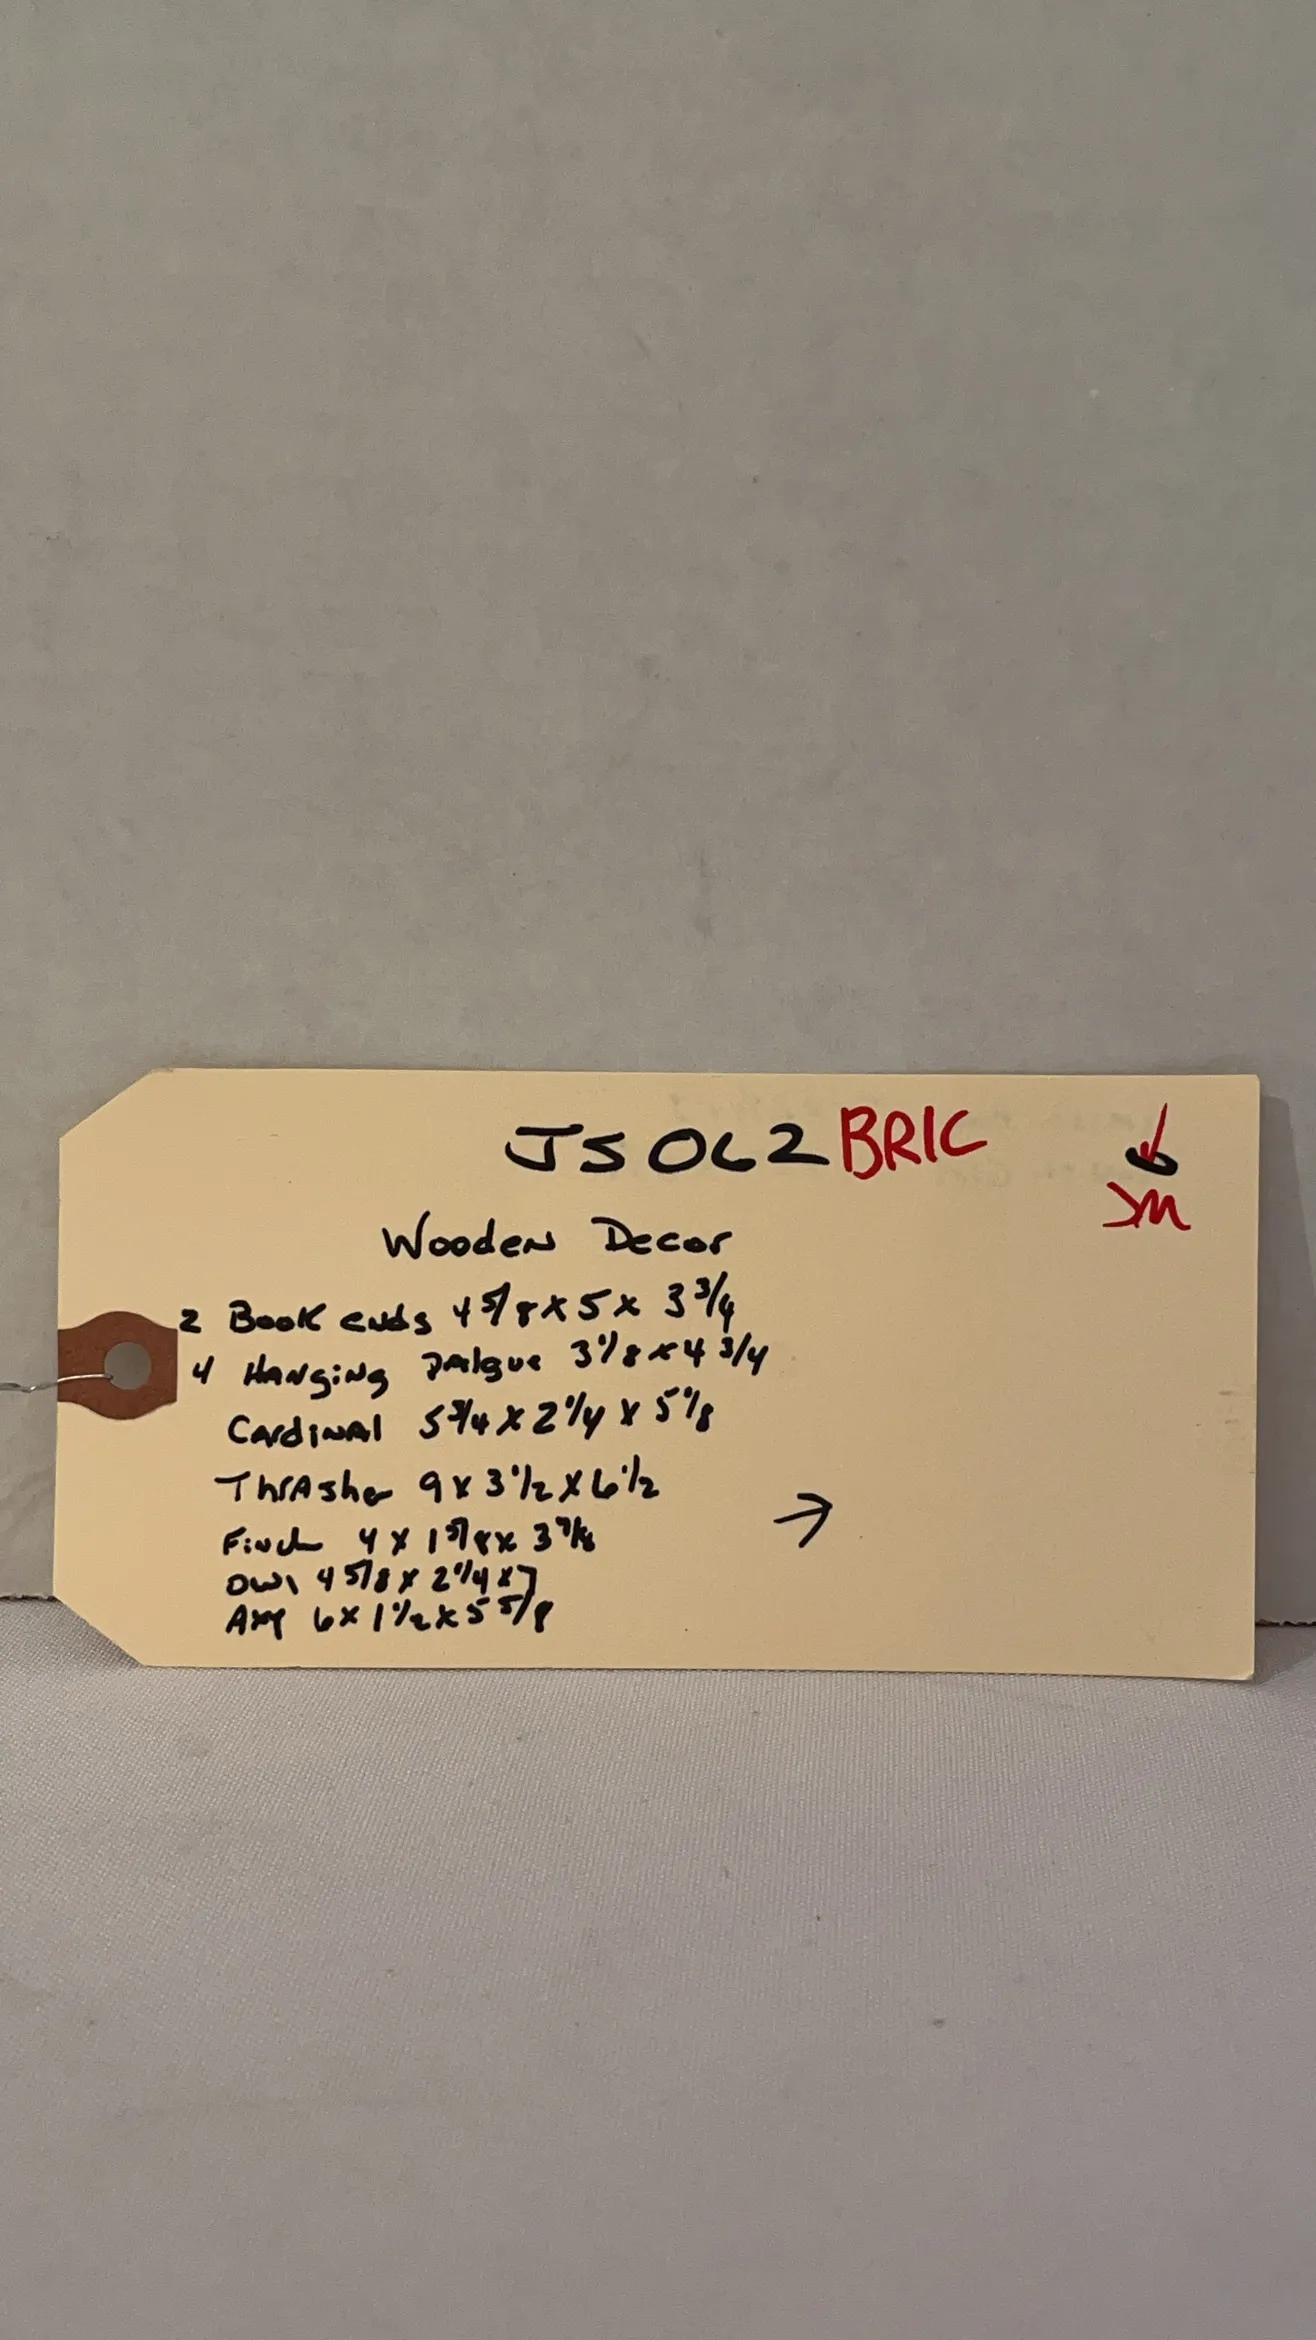 JS062 BRIC
JM
Wooden Decor
2 Book ends 4 5/8 x 5 x 3 3/4
4 Hanging Palque 3 1/8 x 4 3/4
Cardinal 5 3/4 x 2 1/4 x 5 1/8
Thrasher 9 x 3 1/2 x 6 1/2
→
Finch 4 x 1 5/8 x 3 7/8
Owl 4 5/8 x 2 1/4 x 7
6 x 1 1/2 x 5 5/8